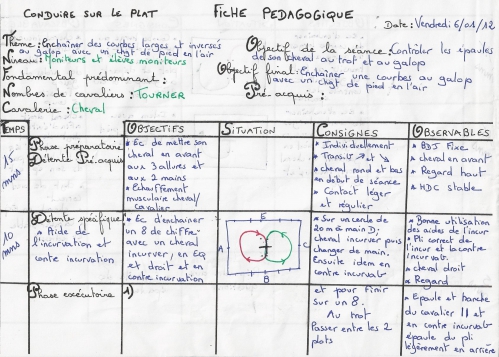 CONDUIRE SUR LE PLAT
FICHE PEDAGOGIQUE
Date : Vendredi 6/01/12
Thème : Enchaîner des courbes larges et inversés
au galop avec un chgt de pied en l'air
Niveau : Moniteurs et élèves moniteurs
Fondamental prédominant :
Nombres de cavaliers : TOURNER
Cavalerie : Cheval
Objectif de la séance : Contrôler les épaules
de son cheval au trot et au galop
Objectif final : Enchaîner une courbes au galop
avec un chgt de pied en l'air
Pré-acquis :
TEMPS
OBJECTIFS
SITUATION
CONSIGNES
OBSERVABLES
15
mns
Phase préparatoire
Détente Pré.acquis
* Ec de mettre son
cheval en avant
aux 3 allures et
aux 2 mains
* Echauffement
musculaire cheval/
cavalier
* Individuellement
* Transit ↗ et ↘
* cheval rond et bas
en début de séance
* Contact léger
et régulier
* BDJ fixe
* cheval en avant
* Regard haut
* HDC stable
10
mns
Détente spécifique
* Aide de
l'incurvation et
contre incurvation
* Ec d'enchaîner
un 8 de chiffre
avec un cheval
incurver, en EQ
et droit et en
contre incurvation
E
A
C
B
* Sur un cercle de
20 m à main D;
cheval incurver puis
changer de main.
Ensuite idem en
contre incurvat°
* Bonne utilisation
des aides de l'incur
* Pli correct de
l'incur et la contre
incurvat°.
* cheval droit
* Regard
Phase exécutoire
1)
et pour finir
sur un 8.
Au trot
Passer entre les 2
plots
* Epaule et hanche
du cavalier // et
en contre incurvat°
épaule du pli
légèrement en arrière